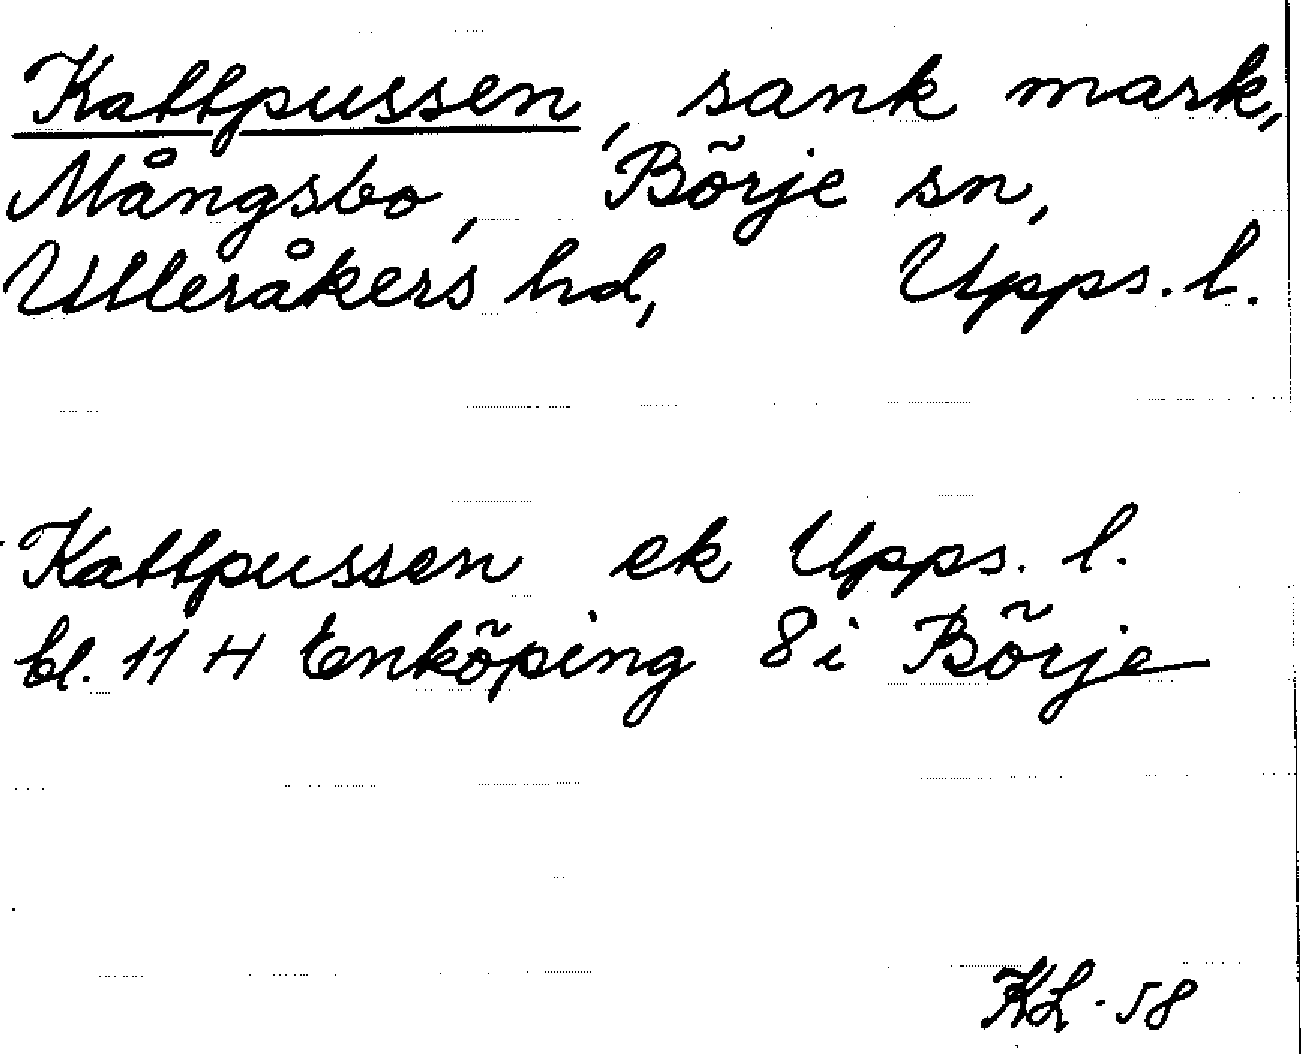 Kattpussen, sank mark,
Mångsbo, Börje sn,
Ulleråkers hd, Upps. l.
Kattpussen ek Upps. l.
bl. 114 Enköping 8i Börje
KL-58